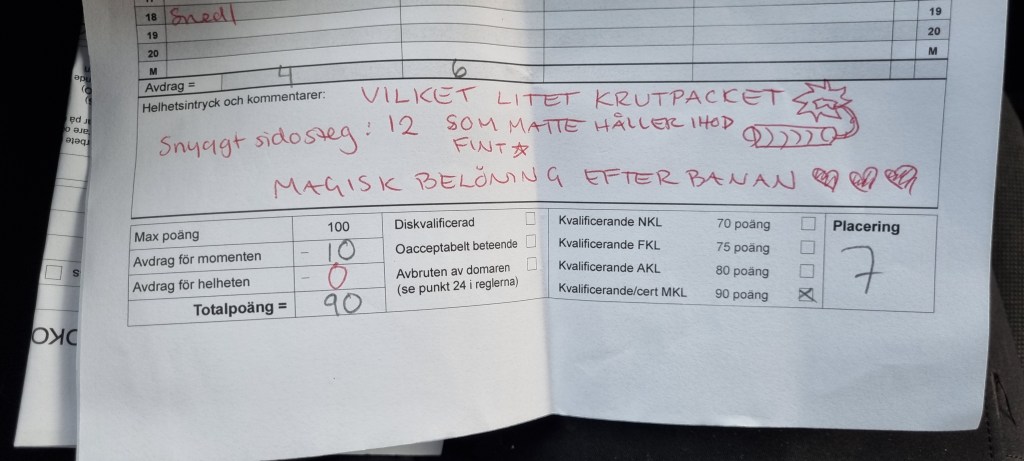 18 Snedl 19
19 20
20 M
M
Avdrag = 4 6
Helhetsintryck och kommentarer: VILKET LITET KRUTPACKET
Snyggt sidosteg: 12 SOM MATTE HÅLLER IHOP
FINT
MAGISK BELÖNING EFTER BANAN
Max poäng 100
Avdrag för momenten - 10
Avdrag för helheten - 0
Totalpoäng = 90
Diskvalificerad
Oacceptabelt beteende
Avbruten av domaren
(se punkt 24 i reglerna)
Kvalificerande NKL 70 poäng
Kvalificerande FKL 75 poäng
Kvalificerande AKL 80 poäng
Kvalificerande/cert MKL 90 poäng
Placering
7